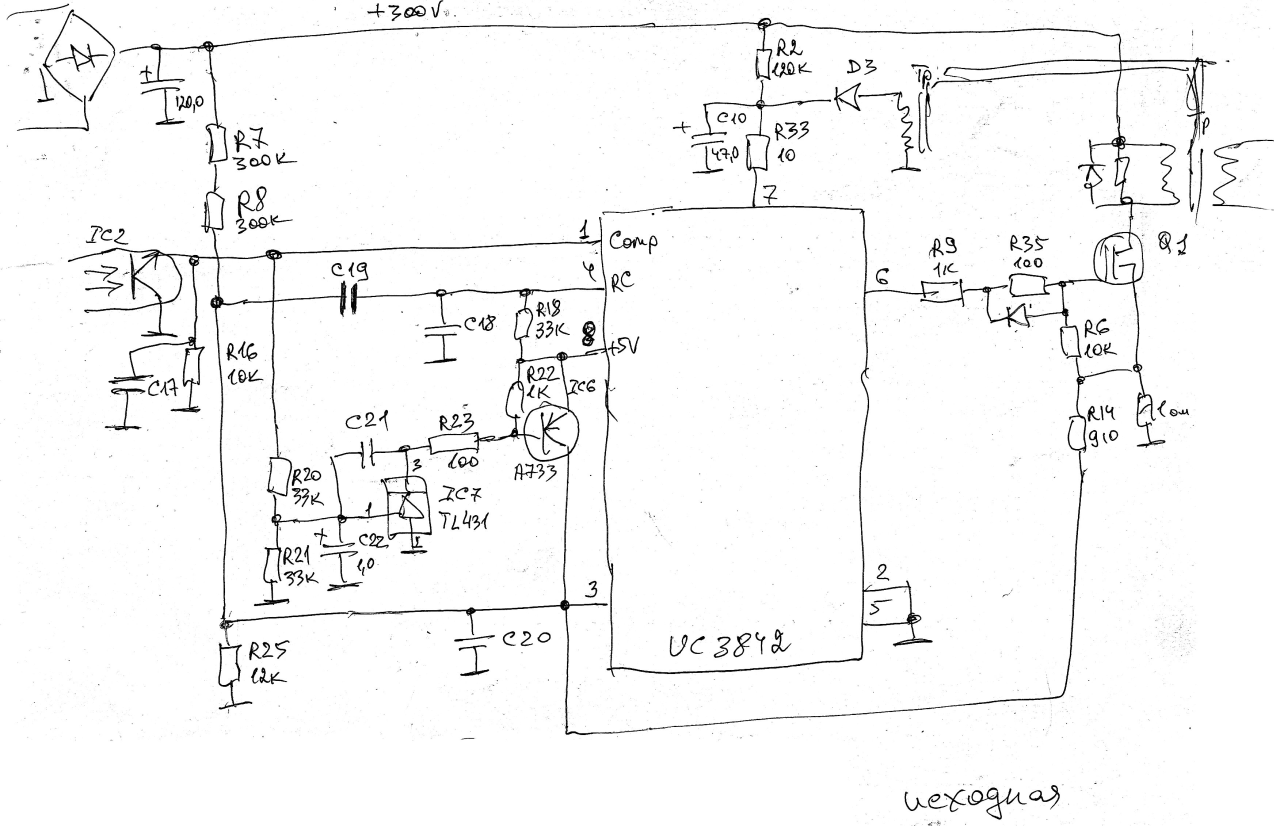 +300V.
+
120,0
R7
300K
R8
300K
IC2
C17
R16
10K
C19
C18
R18
33K
R22
1K
IC6
A733
C21
R23
100
3
IC7
TL431
1
2
R20
33K
+
C22
1,0
R21
33K
R25
12K
C20
R2
120K
D3
Тр.
+
C10
47,0
R33
10
7
1
Comp
4
RC
8
+5V
3
UC 3842
6
2
5
R9
1K
R35
100
R6
10K
R14
910
1 ом
Q1
исходная